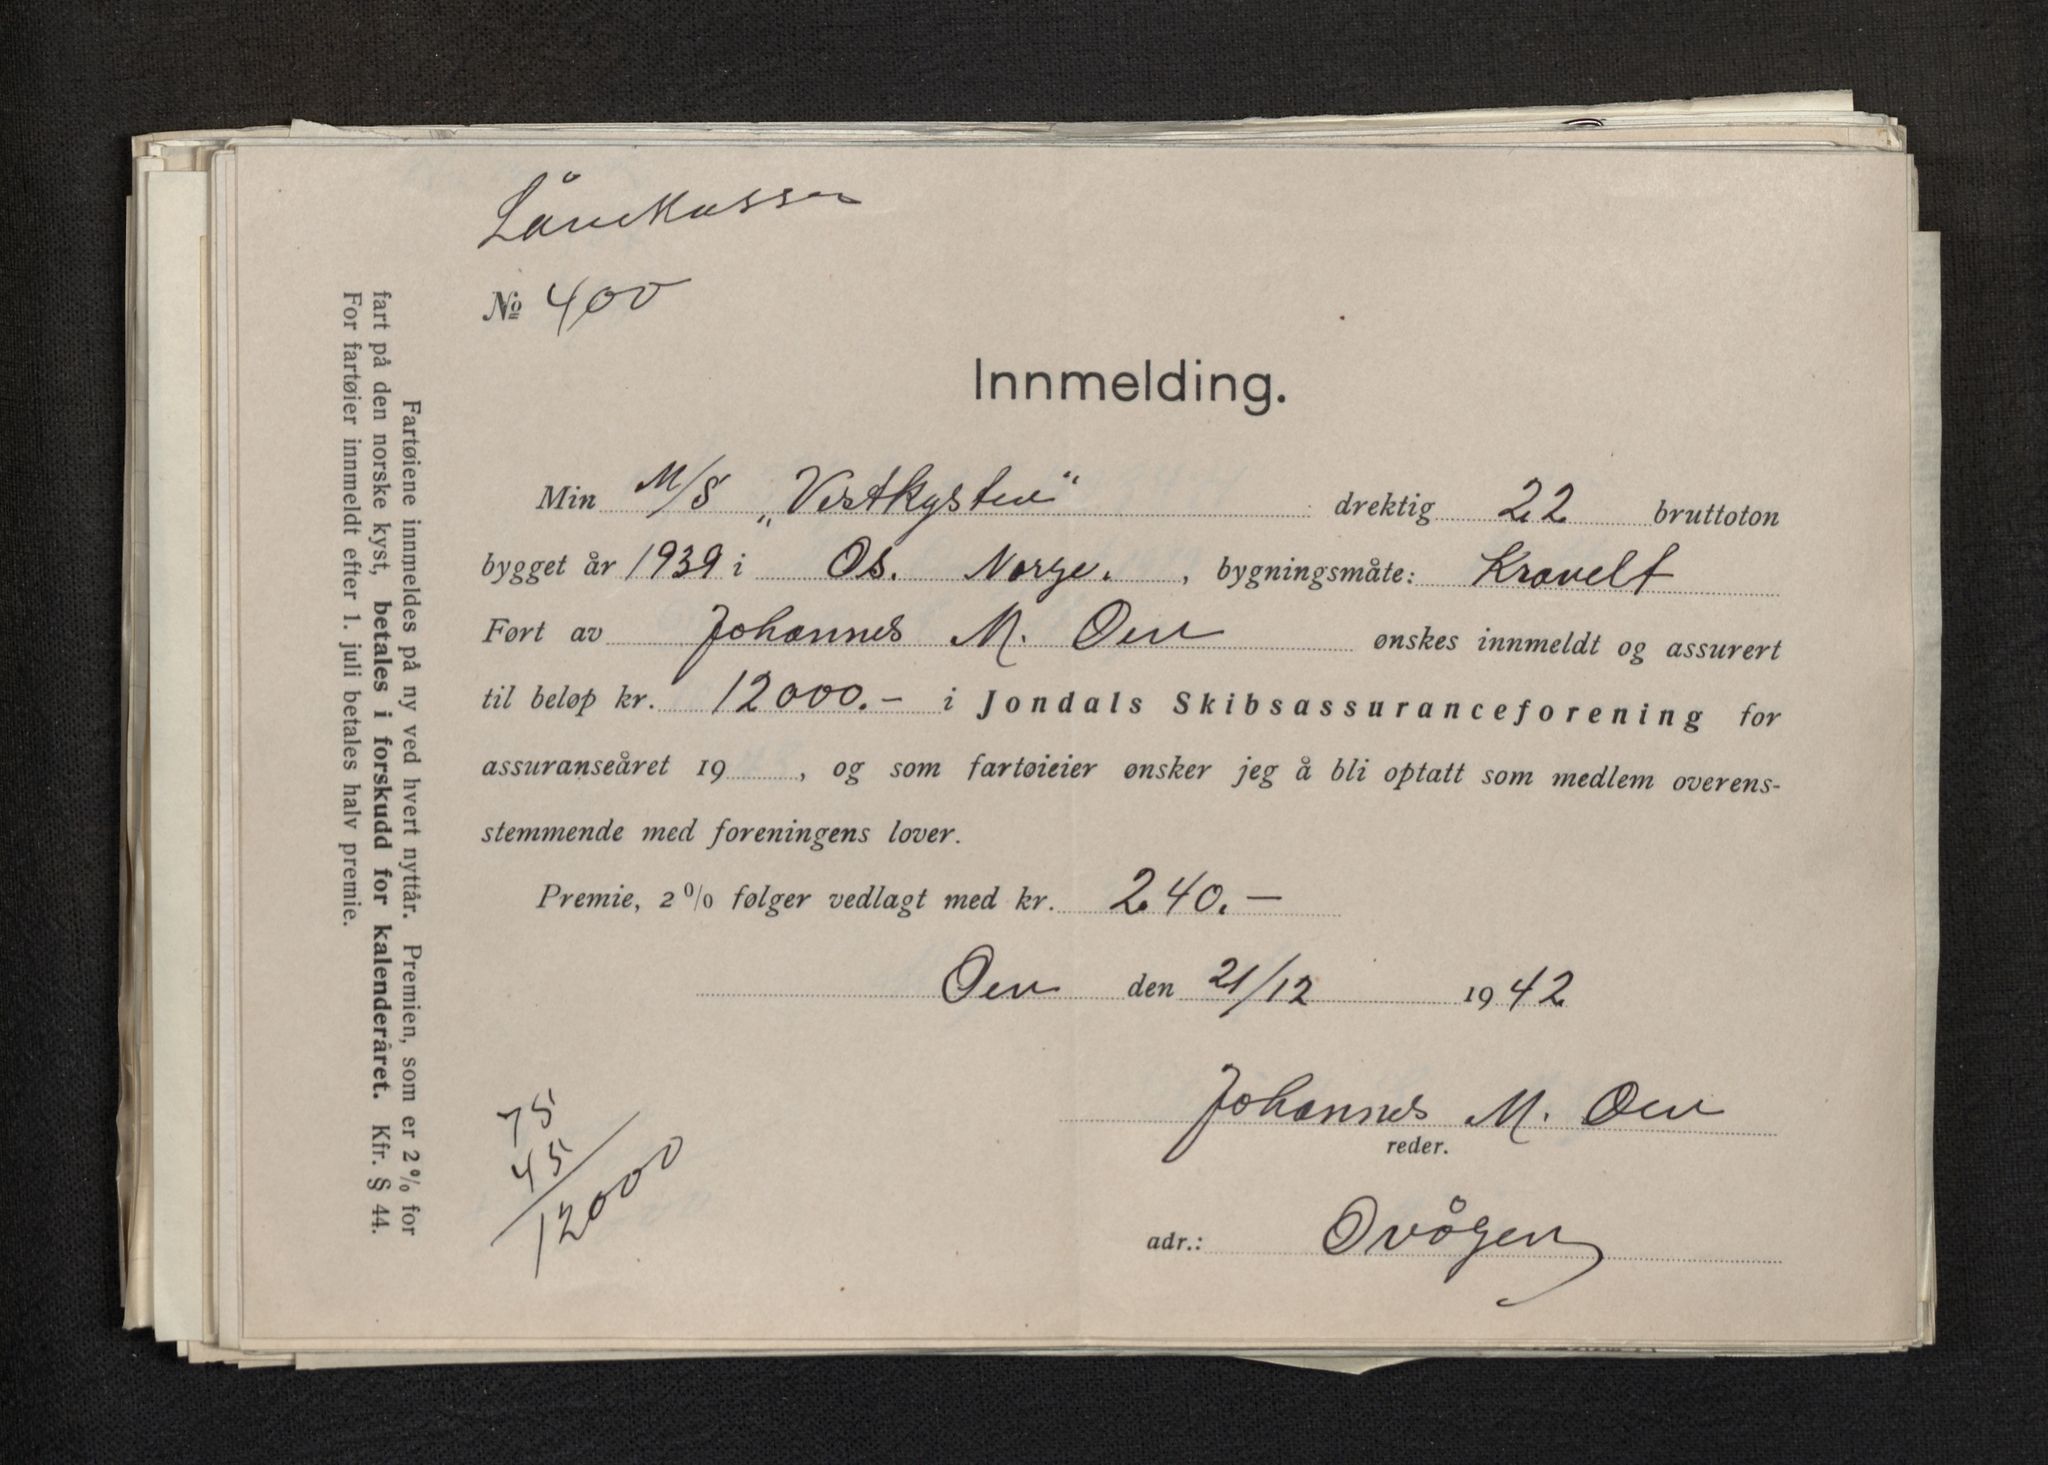 Lånekassen
№ 400
Innmelding.
Min M/S „Vestkysten“ drektig 22 bruttoton
bygget år 1939 i Os. Norge. , bygningsmåte: Kravelt
Ført av Johannes M. Øen ønskes innmeldt og assurert
til beløp kr. 12000.- i Jondals Skibsassuranceforening for
assuranseåret 19 , og som fartøieier ønsker jeg å bli optatt som medlem overens-
stemmende med foreningens lover.
Premie, 2 % følger vedlagt med kr. 240.—
Øen den 21/12 1942
Johannes M. Øen
reder.
adr.: Ovågen
75
45
12000
Fartøiene innmeldes på ny ved hvert nyttår. Premien, som er 2 % for
fart på den norske kyst, betales i forskudd for kalenderåret. Kfr. § 44.
For fartøier innmeldt efter 1. juli betales halv premie.